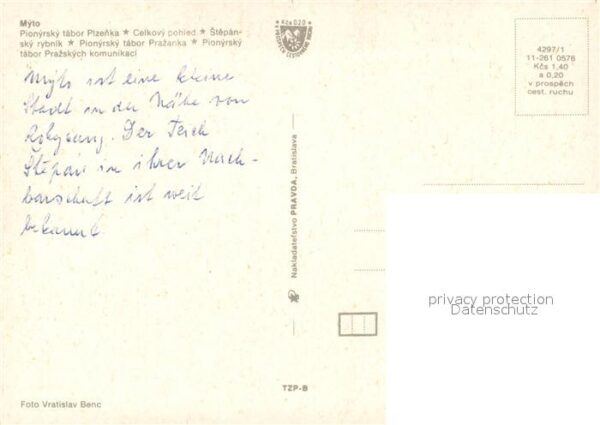 Mýto
Pionýrský tábor Plzeňka ★ Celkový pohled ★ Štěpán-
ský rybník ★ Pionýrský tábor Pražanka ★ Pionýrský
tábor Pražských komunikací
Mýto ist eine kleine
Stadt in der Nähe von
Rokycany. Der Teich
Štěpán in ihrer Nach-
barschaft ist weit
bekannt.
Kčs 0,20
4297/1
11-261 0576
Kčs 1,40
a 0,20
v prospěch
cest. ruchu
Nakladateľstvo PRAVDA, Bratislava
TZP-B
Foto Vratislav Benc
privacy protection
Datenschutz